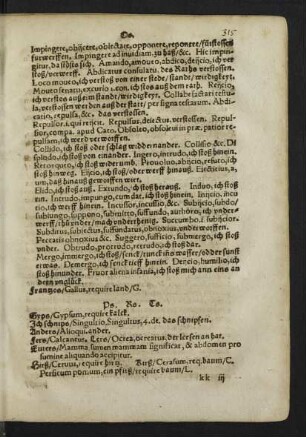 Do.
315
Impingere, obijcere, obiectare, opponere, reponere/fürstossen
furwerffen. Impingere ad inuidiam, zu haß/&c. Hic impin-
gitur, da stößt sich. Amando, amouo, abdico, deijcio, ich ver
stoß/verwerff. Abdicatus consulatu, des Raths verstossen.
Loco moueo, ich verstoß von einer stede/stande/wirdigkeyt.
Moueo senatu, excurio .i. eon, ich stoß auß dem rath. Reijcio,
ich verstoß
repulsa, &c. das verstossen.
Repulsor, qui reijcit. Repulsus, deiectus, verstossen. Repul-
sior, compa. apud Cato. Obsoleo, obsolui in præ. patior repul-
sam, ich werd verworffen.
Collido, ich stoß oder schlag wider nander. Collisio &c. Di
splendo, ich stoß von einander. Ingero, intrudo, ich stoß hinein.
Retorqueo, ich stoß wider umb. Prouoluo, abijcio, retrudo, ich
stoß hinweg. Eijcio, ich stoß/oder werff hinauß. Eiectitius, a,
um, das hinauß geworffen wirt.
Elido, ich stoß auß. Extundo, ich stoß herauß. Induo, ich stoß
in. Intrudo, impingo, cum dat, ich stoß hinein. Incutio, inijcio,
ich werff hinein. Incussor, incussio &c. Subijcio, subdo/
subiungo, suppono, submitto, suffundo, authores, ich under
werff/
Subdatus, subiectus, suffundatus, obnoxius, underworffen.
Peccatis obnoxius &c. Suggero, sufficio, submergo, ich stoß
under. Obtrudo, protrudo, retrudo, ich stoß dar.
Mergo, immergo, ich stoß/senck/
wirs. Demergo, ich senck tieff hinein. Deijcio, humilio, ich
stoß hinunder. Fruor aliena insania, ich stoß mich ann eins an
dern unglück.
Frantzos/Gallus, require land/G.
Ps. Ro. Ts.
Gyps/Gypsum, require kalck.
Ich schnips/Singultio, Singultus, 4. de. das schnipsen.
Anders/Alioqui, ander.
Fers/Calcaneus, Lers/Ocrea, ocreatus, der lersen an hat.
Euters/Mamma suman mammam significat, & abdomen pro
sumine aliquando accipitur.
Hirß/Ceruus, require hirtz. Kirß/Cerasum, req. baum/C.
Persicum pomum, ein pfirß/require baum/L.
kk iij